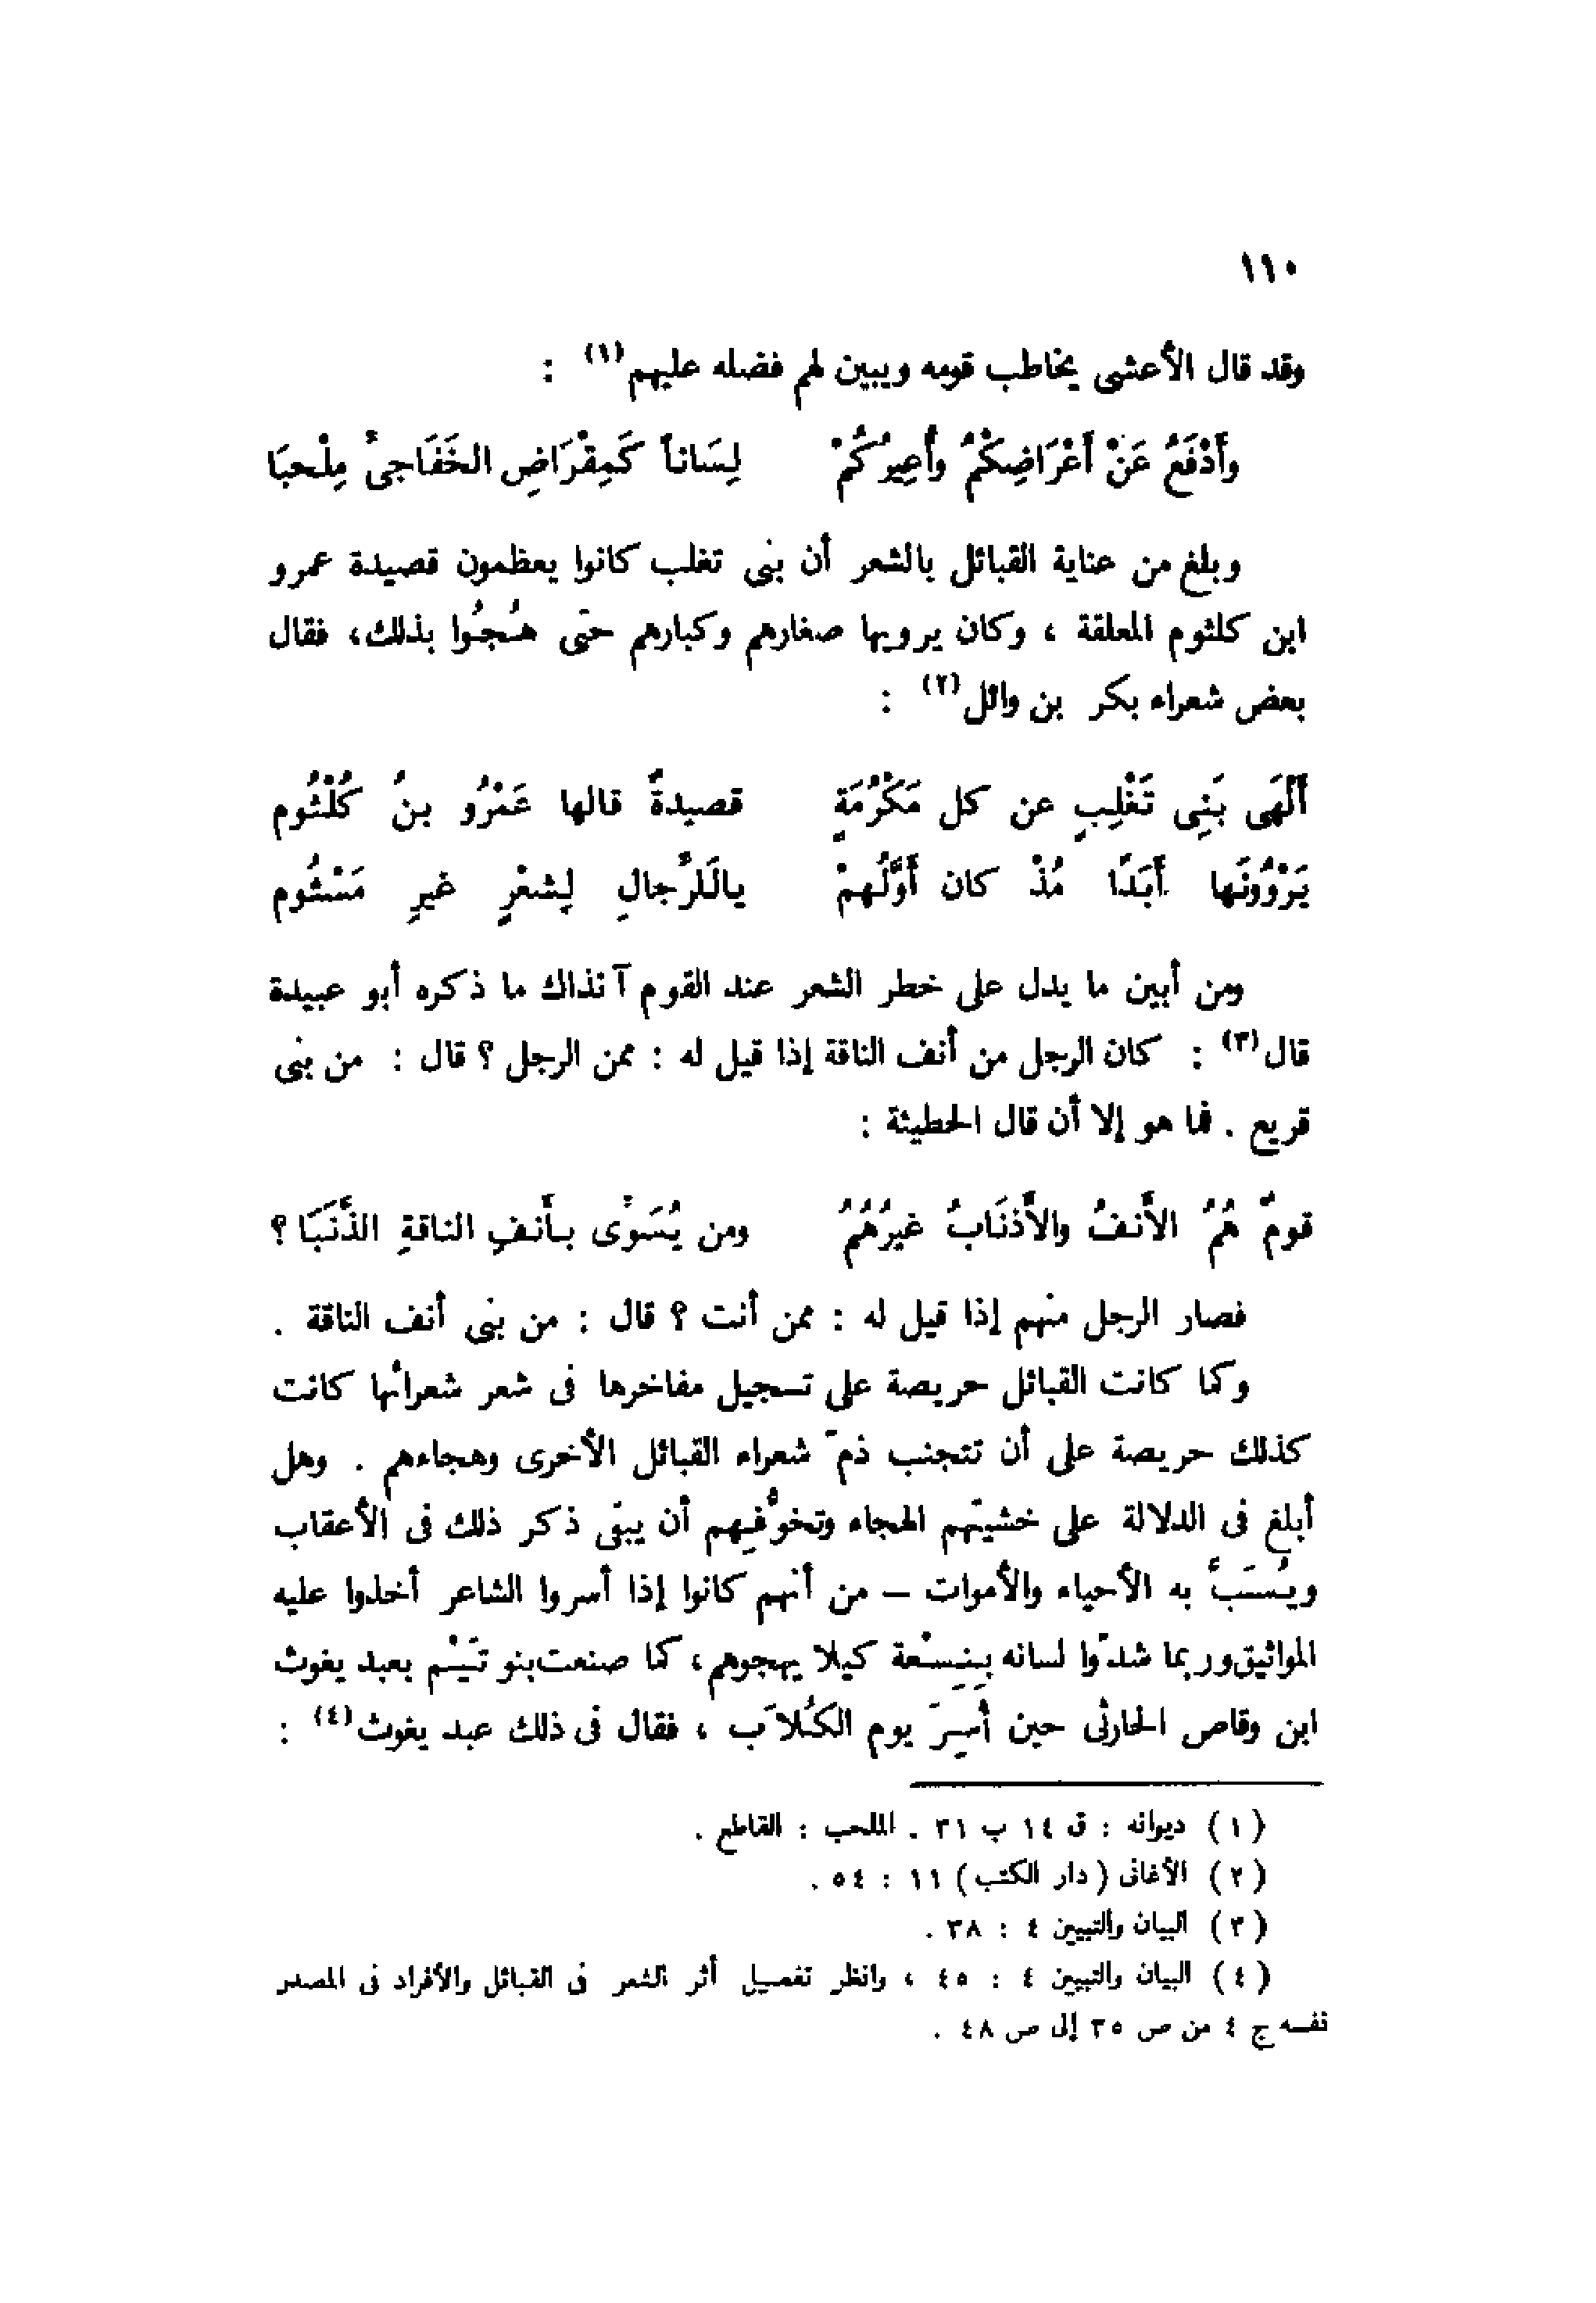 ١١٠
وقد قال الأعشى يخاطب قومه ويبين لهم فضله عليهم(١) :
وأَدْفَعُ عَنْ أَعْرَاضِكُمْ وأُعِيرُكُمْ لِسَاناً كَمِقْرَاضِ الخَفَاجِىِّ مِلْحبَا
وبلغ من عناية القبائل بالشعر أن بنى تغلب كانوا يعظمون قصيدة عمرو
ابن كلثوم المعلقة ، وكان يرويها صغارهم وكبارهم حتى هُجُوا بذلك، فقال
بعض شعراء بكر بن وائل(٢) :
أَلْهَى بَنِى تَغْلِبٍ عن كل مَكْرُمَةٍ قصيدةٌ قالها عَمْرُو بنُ كُلْثُوم
يَرْوُونَها أَبَدًا مُذْ كان أَوَّلُهمْ يالَلرِّجالِ لِشعْرٍ غيرِ مَسْئُوم
ومن أبين ما يدل على خطر الشعر عند القوم آنذاك ما ذكره أبو عبيدة
قال(٣) : كان الرجل من أنف الناقة إذا قيل له : ممن الرجل ؟ قال : من بنى
قريع . فما هو إلا أن قال الحطيئة :
قومٌ هُمُ الأَنفُ والأَذنَابُ غيرُهُمُ ومن يُسَوِّى بأَنفِ الناقةِ الذَّنَبَا ؟
فصار الرجل منهم إذا قيل له : ممن أنت ؟ قال : من بنى أنف الناقة .
وكما كانت القبائل حريصة على تسجيل مفاخرها فى شعر شعرائها كانت
كذلك حريصة على أن تتجنب ذمّ شعراء القبائل الأخرى وهجاءهم . وهل
أبلغ فى الدلالة على خشيتهم الهجاء وتخوُّفِهم أن يبقى ذكر ذلك فى الأعقاب
ويُسَبَّ به الأحياء والأموات – من أنهم كانوا إذا أسروا الشاعر أخذوا عليه
المواثيق وربما شدّوا لسانه بِنِسْعة كيلا يهجوهم ، كما صنعت بنو تَيْم بعبد يغوث
ابن وقاص الحارثى حين أُسِرَ يوم الكُلاَب ، فقال فى ذلك عبد يغوث(٤) :
(١) ديوانه : ق ١٤ ب ٣١ . الملحب : القاطع .
(٢) الأغانى (دار الكتب) ١١ : ٥٤ .
(٣) البيان والتبيين ٤ : ٣٨ .
(٤) البيان والتبيين ٤ : ٤٥ ، وانظر تفصيل أثر الشعر فى القبائل والأفراد فى المصدر
نفسه ج ٤ من ص ٣٥ إلى ص ٤٨ .